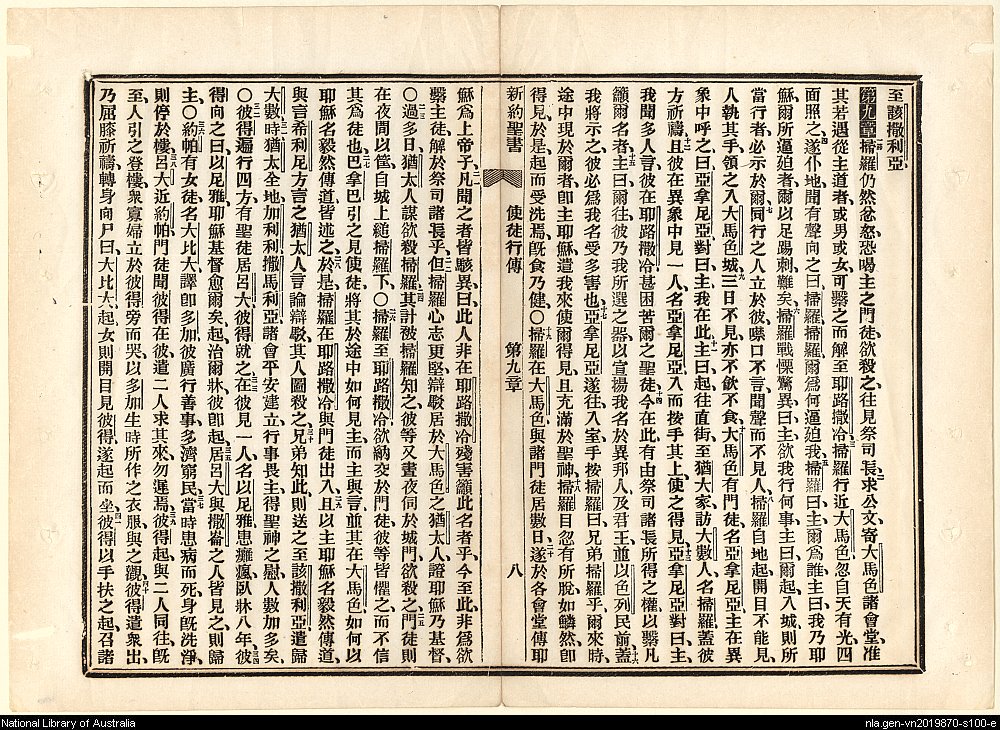 至該撒利亞
第九章掃羅仍然忿怒恐喝主之門徒欲殺之往見祭司長求公文寄大馬色諸會堂准
其若遇從主道者或男或女可繫之而解至耶路撒冷掃羅行近大馬色忽自天有光四
面照之遂仆地聞有聲向之曰掃羅掃羅爾爲何逼迫我掃羅曰主爾爲誰主曰我乃耶
穌爾所逼迫者爾以足踢刺難矣掃羅戰慄驚異曰主欲我行何事主曰爾起入城則所
當行者必示於爾同行之人立於彼噤口不言聞聲而不見人掃羅自地起開目不能見
人執其手領之入大馬色城三日不見亦不飲不食大馬色有門徒名亞拿尼亞主在異
象中呼之曰亞拿尼亞對曰主我在此主曰起往直街至猶大家訪大數人名掃羅蓋彼
方祈禱且彼在異象中見一人名亞拿尼亞入而按手其上使之得見亞拿尼亞對曰主
我聞多人言彼在耶路撒冷甚困苦爾之聖徒今在此有由祭司諸長所得之權以繫凡
籲爾名者主曰爾往彼乃我所選之器以宣揚我名於異邦人及君王並以色列民前蓋
我將示之彼必爲我名受多害也亞拿尼亞遂往入室手按掃羅曰兄弟掃羅乎爾來時
途中現於爾者即主耶穌遣我來使爾得見且充滿於聖神掃羅目忽有所脫如鱗然即
得見於是起而受洗焉既食乃健〇掃羅在大馬色與諸門徒居數日遂於各會堂傳耶
新約聖書 使徒行傳 第九章 八
穌爲上帝子凡聞之者皆駭異曰此人非在耶路撒冷殘害籲此名者乎今至此非爲欲
繫主徒解於祭司諸長乎但掃羅心志更堅辯駁居於大馬色之猶太人證耶穌乃基督
〇過多日猶太人謀欲殺掃羅其計被掃羅知之彼等又晝夜伺於城門欲殺之門徒則
在夜間以筐自城上縋掃羅下〇掃羅至耶路撒冷欲納交於門徒彼等皆懼之而不信
其爲徒也巴拿巴引之見使徒將其於途中如何見主而主與言並其在大馬色如何以
耶穌名毅然傳道皆述之於是掃羅在耶路撒冷與門徒出入且以主耶穌名毅然傳道
與言希利尼方言之猶太人言論辯駁其人圖殺之兄弟知此則送之至該撒利亞遣歸
大數時猶太全地加利利撒馬利亞諸會平安建立行事畏主得聖神之慰人數加多矣
〇彼得遍行四方有聖徒居呂大彼得就之在彼見一人名以尼雅患癱瘋臥牀八年彼
得向之曰以尼雅耶穌基督愈爾矣起治爾牀彼即起居呂大與撒崙之人皆見之則歸
主〇約帕有女徒名大比大譯即多加彼廣行善事多濟窮民當時患病而死身既洗淨
則停於樓呂大近約帕門徒聞彼得在彼遣二人求其來勿遲焉彼得起與二人同往既
至人引之登樓衆寡婦立於彼得旁而哭以多加生時所作之衣服與之觀彼得遣衆出
乃屈膝祈禱轉身向尸曰大比大起女則開目見彼得遂起而坐彼得以手扶之起召諸
National Library of Australia
nla.gen-vn2019870-s100-e